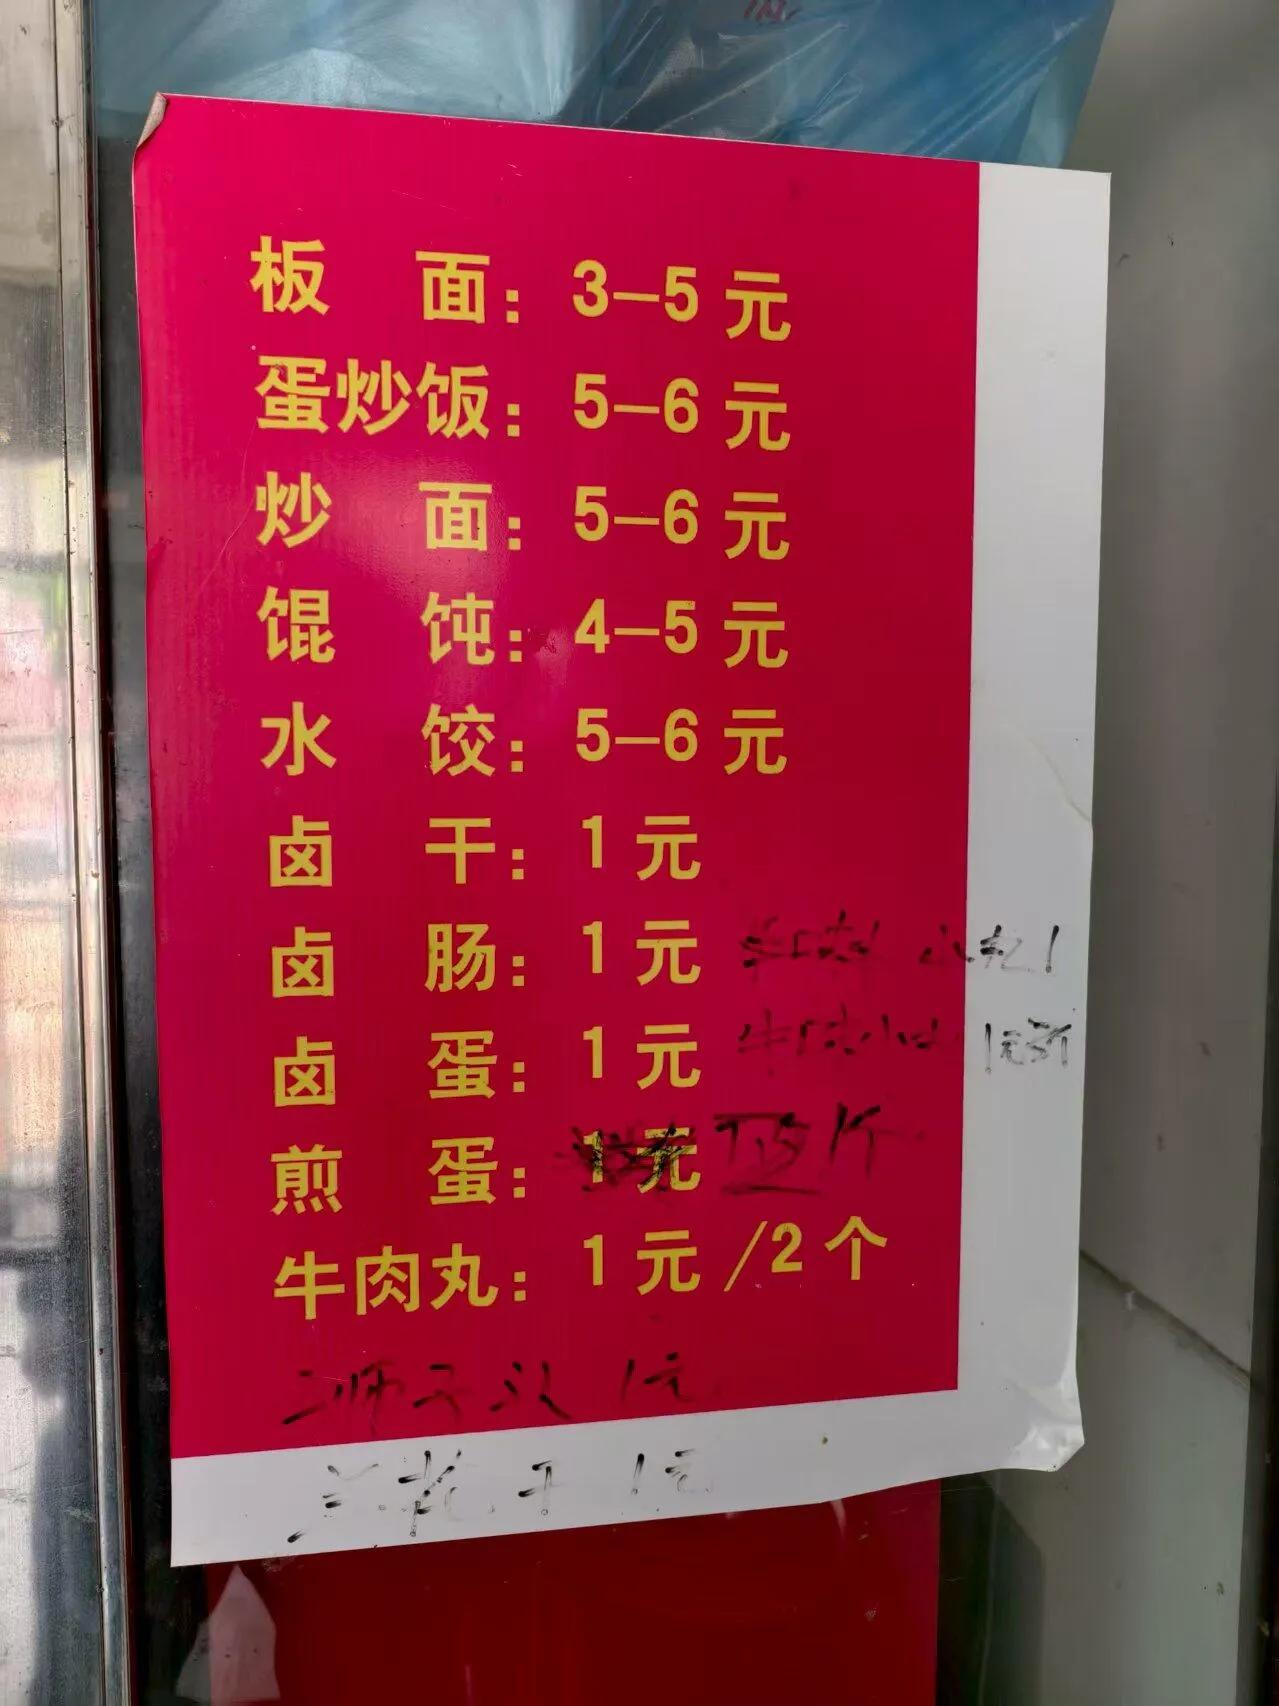 板 面：3—5 元
蛋炒饭：5—6 元
炒 面：5—6 元
馄 饨：4—5 元
水 饺：5—6 元
卤 干：1 元
卤 肠：1 元
卤 蛋：1 元
煎 蛋：1 元
牛肉丸：1 元 /2 个
狮子头 1元
兰花干 1元